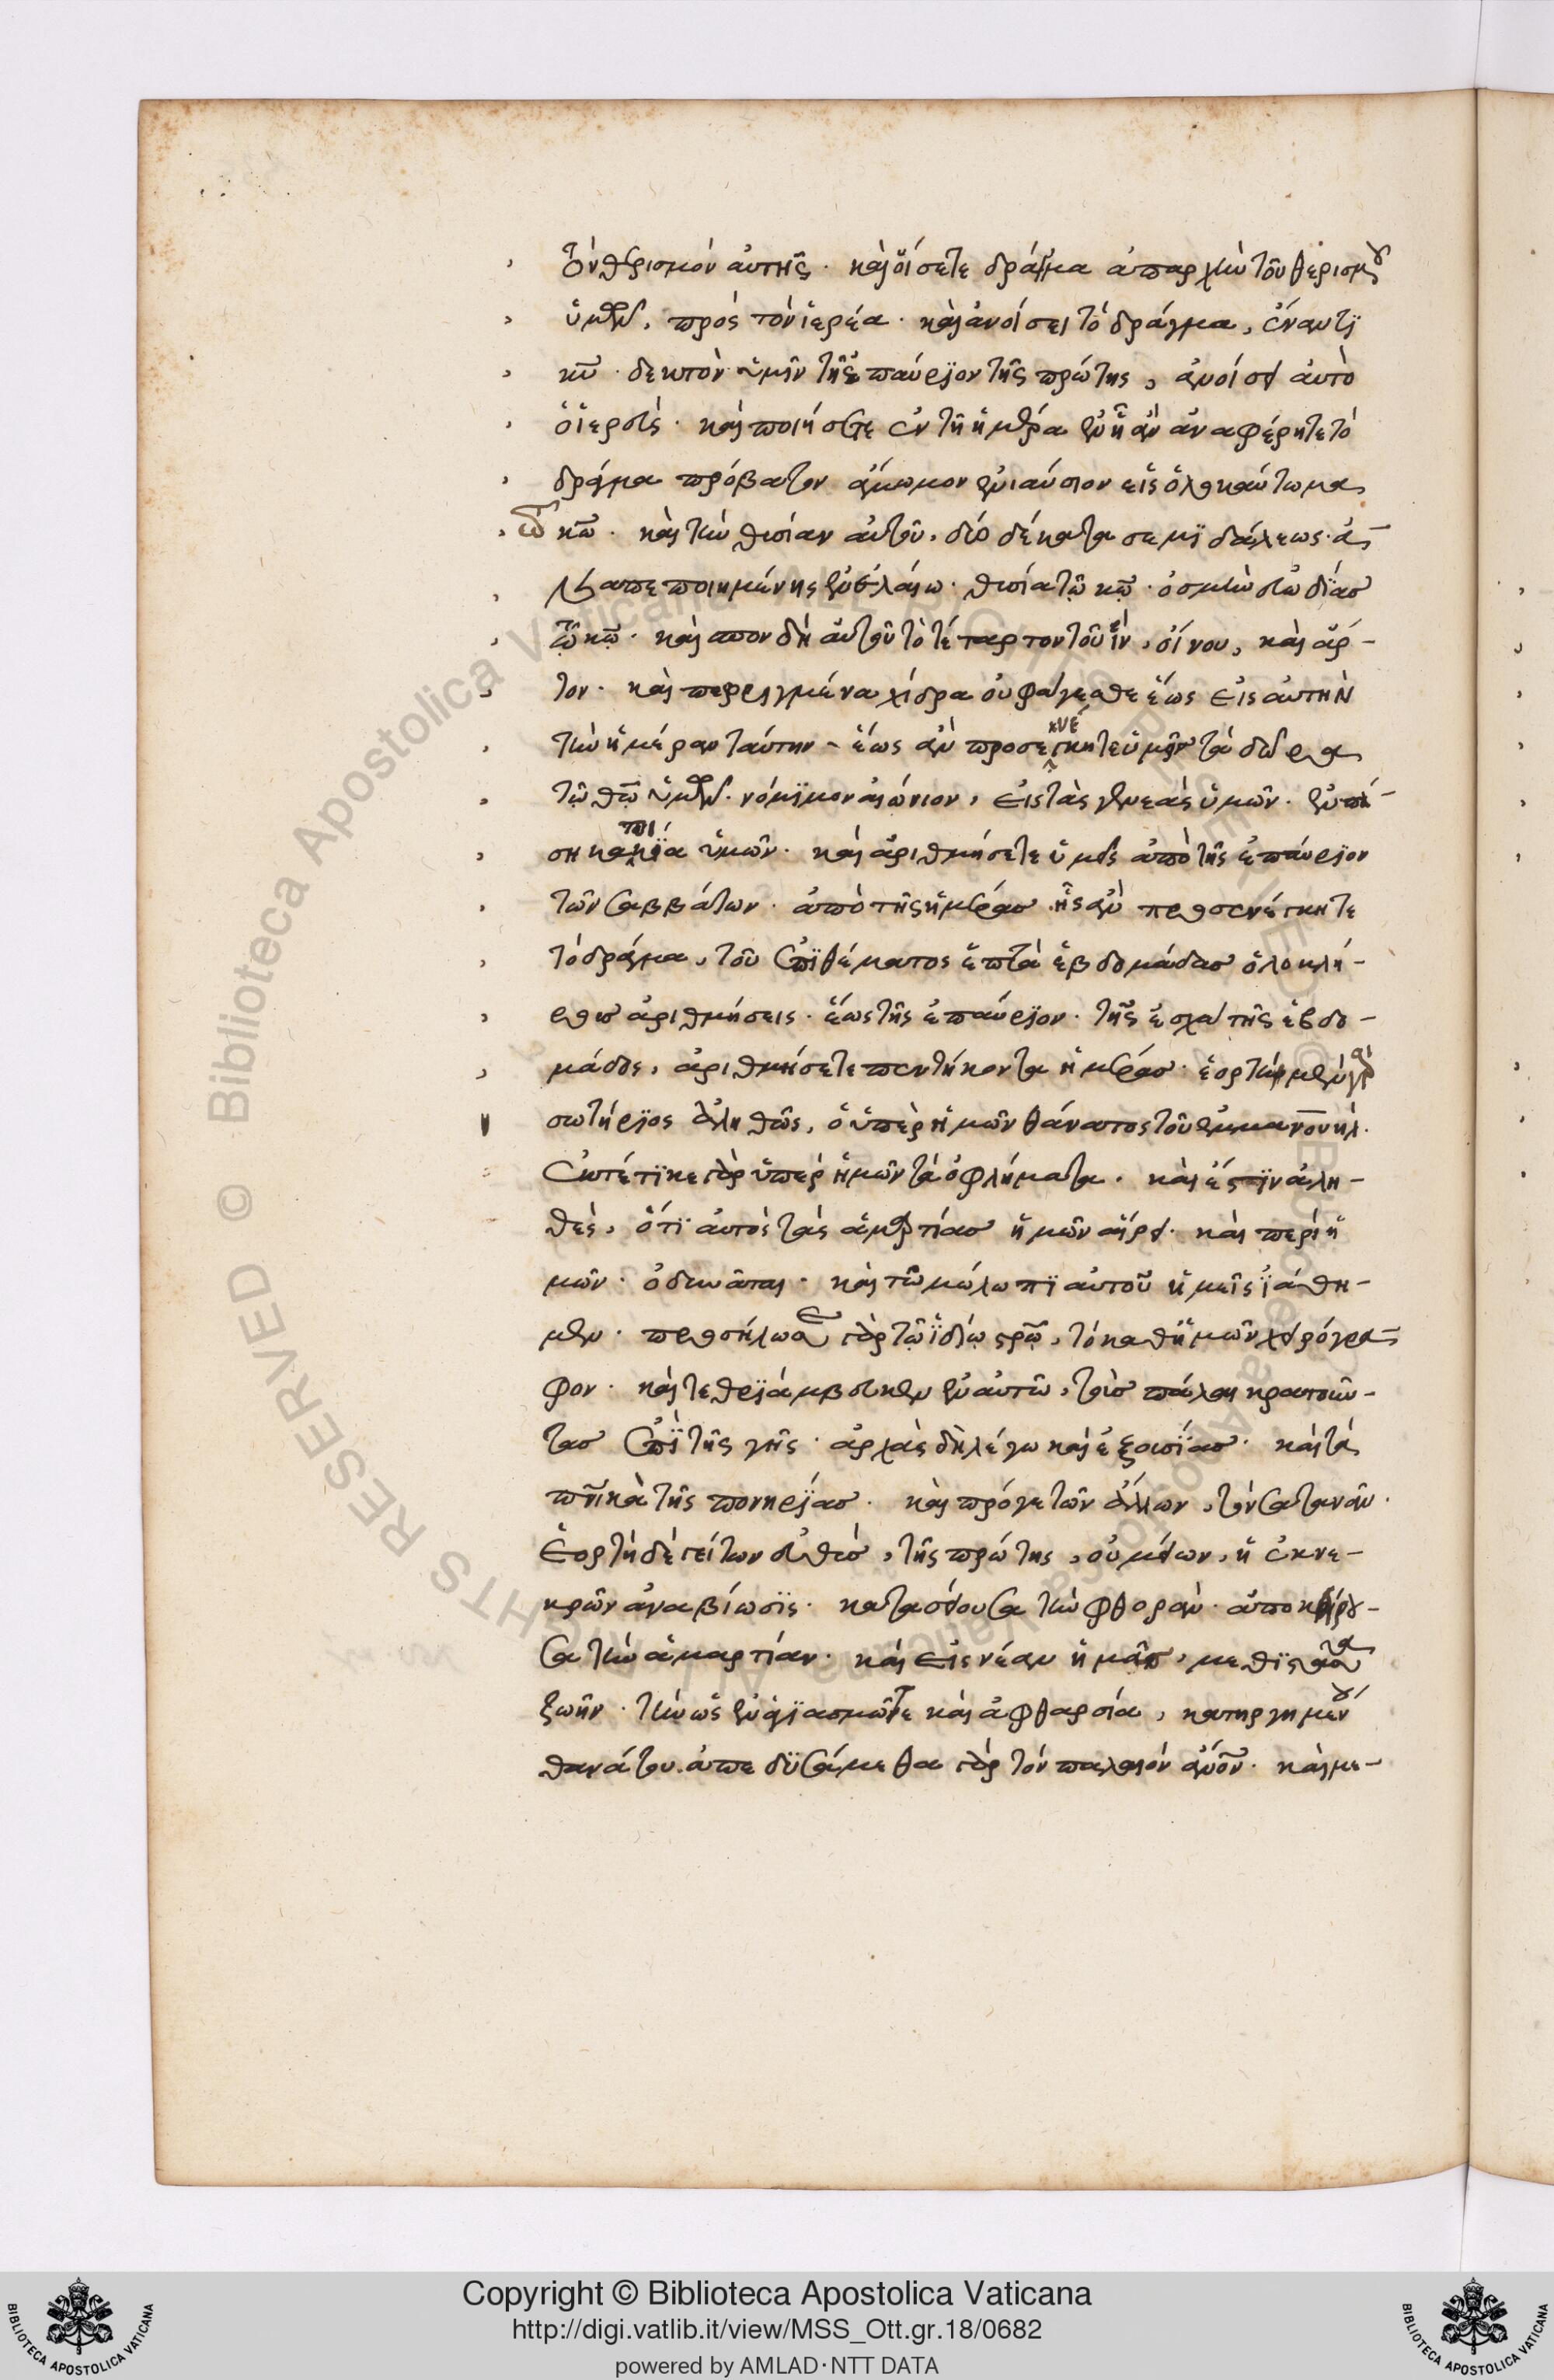 τὸν θερισμὸν αὐτῆς· καὶ οἴσετε δράγμα ἀπαρχὴν τοῦ θερισμοῦ
ὑμῶν, πρὸς τὸν ἱερέα· καὶ ἀνοίσει τὸ δράγμα, ἔναντϊ
κυ̅· δεκτὸν ὑμῖν τῆς ἐπαύρϊον τῆς πρώτης, ἀνοίσει αὐτὸ
ὁ ἱερεὺς· καὶ ποιήσετε ἐν τῇ ἡμέρα ἐν ᾗ ἂν ἀναφέρητε τὸ
δράγμα πρόβατον ἄμωμον ἐνιαύσιον εἰς ὁλοκαύτωμα
τῶ κω̅· καὶ τὴν θυσίαν αὐτοῦ, δύο δέκατα σεμϊδάλεως ἀ-
ναπεποιημένης ἐν ἐλαίω· θυσία τῷ κω̅· ὀσμὴ εὐωδίας
τῷ κω̅· καὶ σπονδὴ αὐτοῦ τὸ τέταρτον τοῦ ἲν, οἴνου, καὶ ἄρ-
τον· καὶ πεφρυγμένα χίδρα οὐ φάγεσθε ἕως εἰς αὐτὴν
τὴν ἡμέραν ταύτην· ἕως ἂν προσενέγκητε ὑμεῖς τὰ δῶρα
τῷ θω̅ ὑμῶν· νόμϊμον αἰώνιον, εἰς τὰς γενεὰς ὑμῶν· ἐν πά-
ση κατοικία ὑμῶν· καὶ ἀριθμήσετε ὑμεῖς ἀπὸ τῆς ἐπαύρϊον
τῶν σαββάτων· ἀπὸ τῆς ἡμέρας ἧς ἂν προσενέγκητε
τὸ δράγμα, τοῦ ἐπϊθέματος ἑπτὰ ἑβδομάδας ὁλοκλή-
ρους ἀριθμήσεις· ἕως τῆς ἐπαύρϊον· τῆς ἐσχάτης ἑβδο-
μάδος, ἀριθμήσετε πεντήκοντα ἡμέρας· ἑορτὴ μὲν γὰρ
σωτήρϊος ἀληθῶς, ὁ ὑπὲρ ἡμῶν θάνατος τοῦ ἐμμανουήλ·
ἐκτέτϊκε γὰρ ὑπὲρ ἡμῶν τὰ ὀφλήματα· καὶ ἔστϊν ἀλη-
θὲς, ὅτϊ αὐτὸς τὰς ἁμαρτίας ἡμῶν αἴρει· καὶ περὶ ἡ
μῶν· ὀδυνᾶται· καὶ τῶ μώλωπϊ αὐτοῦ ἡμεῖς ϊάθη-
μεν· προσήλωσε γὰρ τῷ ϊδίῳ σρω̅, τὸ καθ' ἡμῶν χειρόγρα-
φον· καὶ τεθρϊάμβευκεν ἐν αὐτῶ, τοὺς πάλαι κρατοῦν-
τας ἐπὶ τῆς γῆς· ἀρχὰς δὴ λέγω καὶ ἐξουσίας· καὶ τὰ
πνϊκὰ τῆς πονηρϊας· καὶ πρό γε τῶν ἄλλων, τὸν σατανᾶν·
ἑορτὴ δὲ γείτων εὐθὺς, τῆς πρώτης, οὐ μείων, ἡ ἐκ νε-
κρῶν ἀναβίωσϊς· κατασείουσα τὴν φθορὰν· ἀποκείρου-
σα τὴν ἁμαρτίαν· καὶ εἰς νέαν ἡμᾶς, μεθϊστᾶσα
ζωὴν· τὴν ὡς ἐν ἁγϊασμῶ τε καὶ ἀφθαρσία, κατηργημένου
θανάτου. ἀπεδϋσάμεθα γὰρ τὸν παλαιὸν ἀνον̅· καὶ με-
Copyright © Biblioteca Apostolica Vaticana
http://digi.vatlib.it/view/MSS_Ott.gr.18/0682
powered by AMLAD·NTT DATA